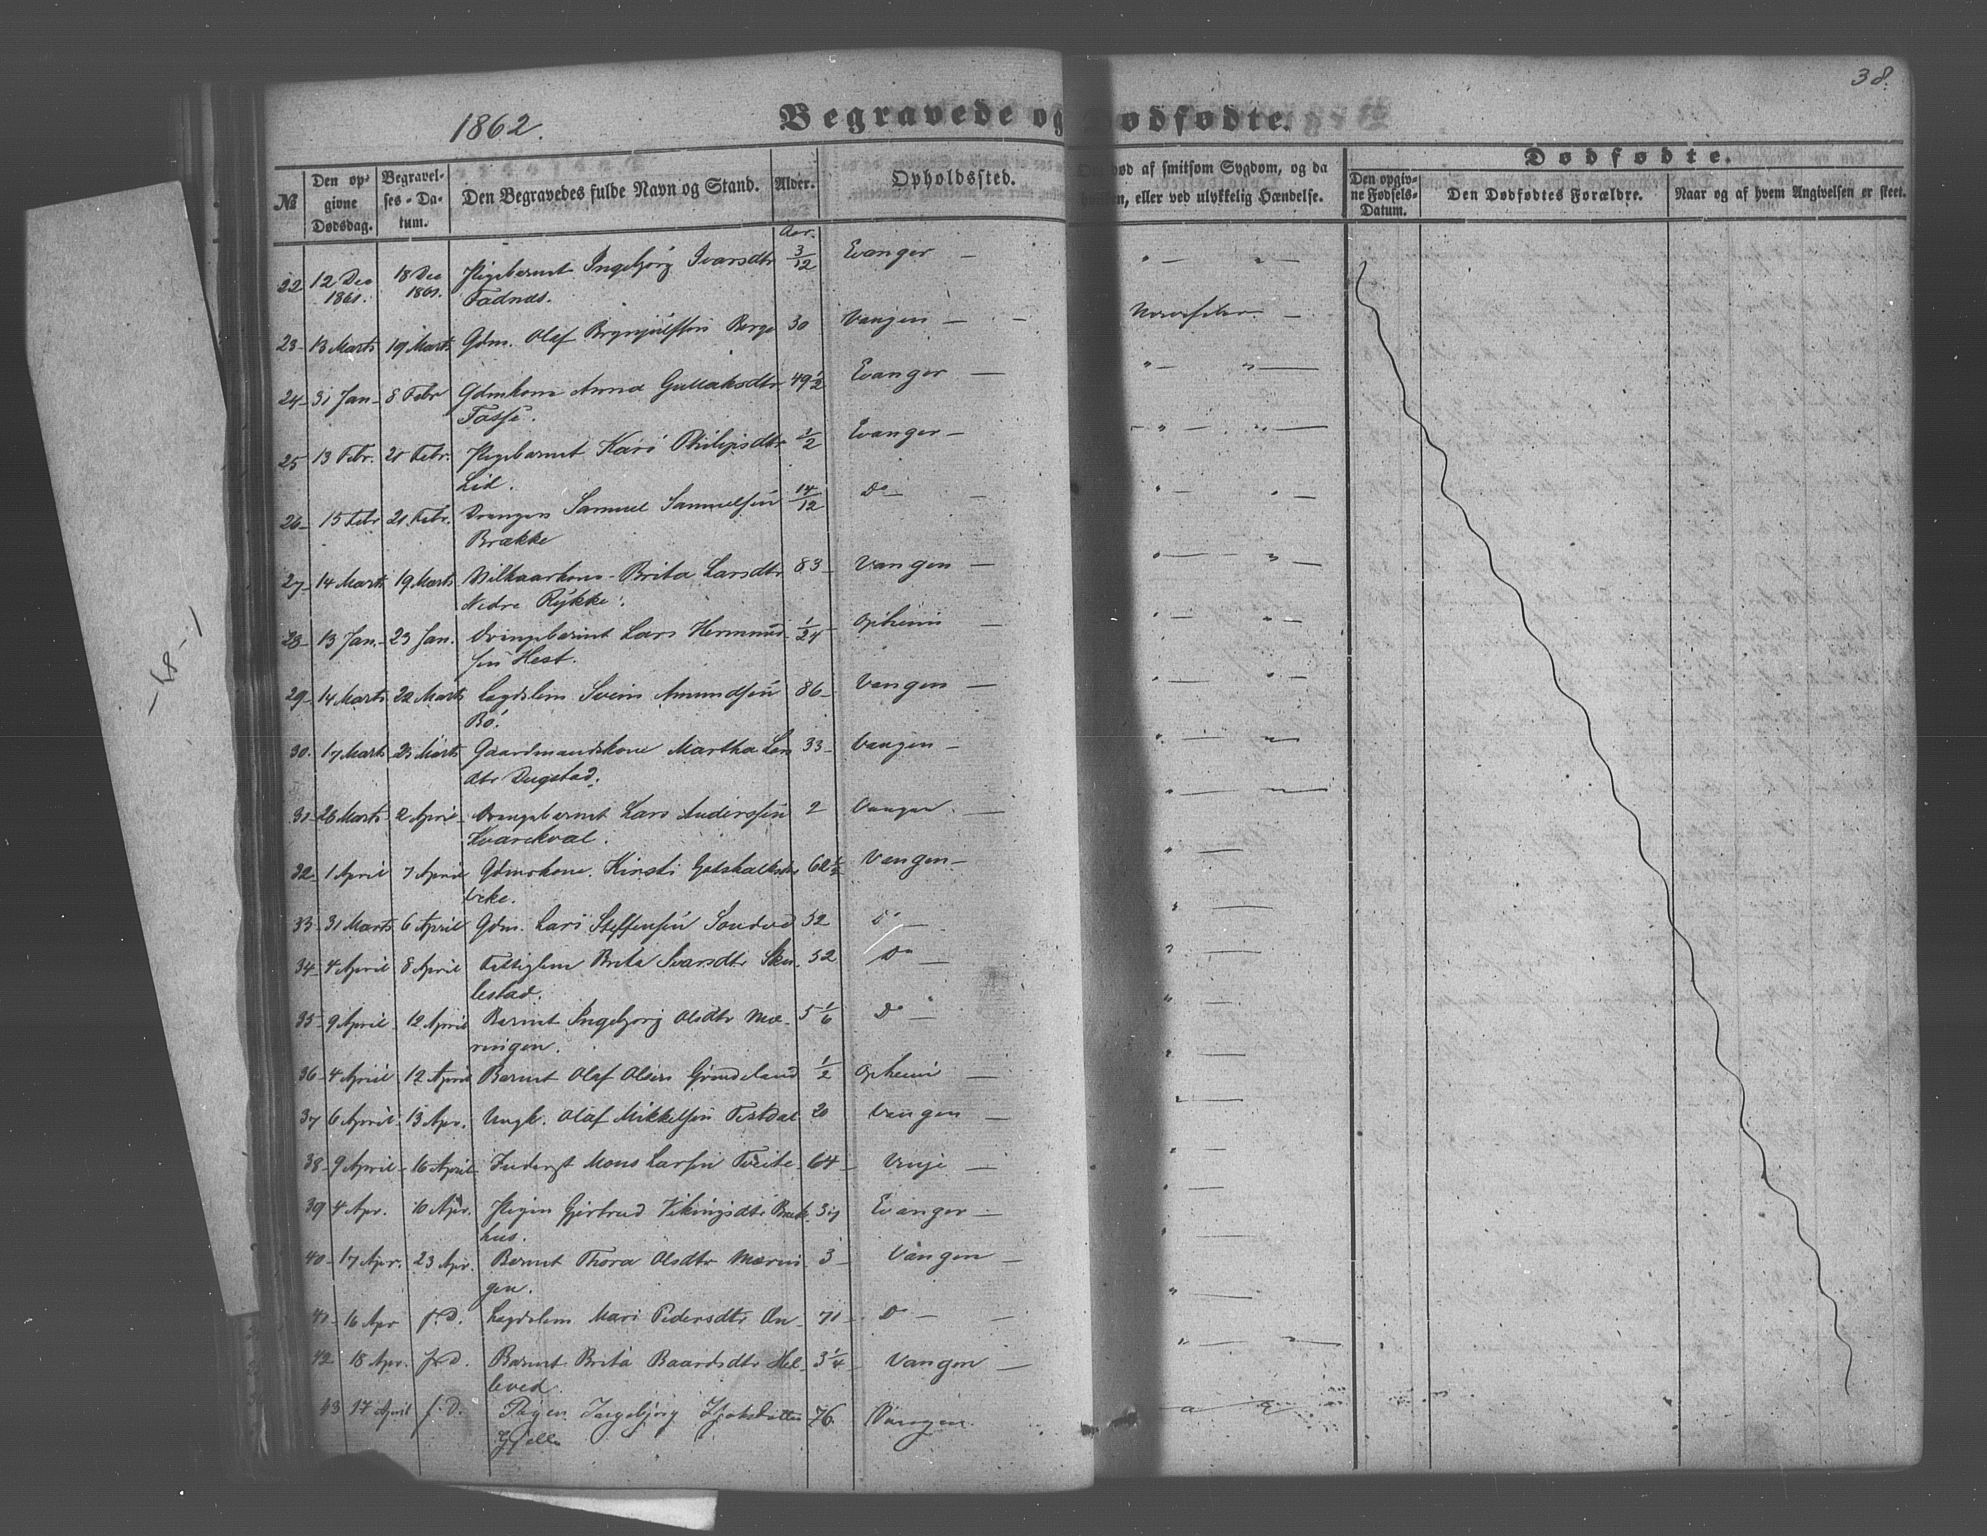 38.
1862.
Begravede og Dødfødte.
№
Den op-
givne
Dødsdag.
Begravel-
ses-Da-
tum.
Den Begravedes fulde Navn og Stand.
Alder.
Opholdssted.
død af smitsom Sygdom, og da
eller ved ulykkelig Hændelse.
Dødfødte.
Den opgiv-
ne Fødsels-
Datum.
Den Dødfødtes Forældre.
Naar og af hvem Angivelsen er skeet.
Aar.
22 12 Dec 1861. 18 Dec 1861. Pigebarnet Ingebjørg Ivarsdtr 3/12 Evanger — " — " —
Fadnæs.
23 13 Marts 19 Marts Gdm. Olaf Brynjulfsen Berge 30 Vangen — Nervefeber —
24 31 Jan 8 Febr Gdmkone Anna Gullaksdtr 49 1/2 Evanger — " — " —
Fasse.
25 13 Febr. 20 Febr. Pigebarnet Kari Philipsdtr 1/2 Evanger — " — " —
Lid.
26 15 Febr 20 Febr. Drengen Samuel Samuelsen 14/12 Do — " — " —
Brække
27 14 Marts 19 Marts Vilkaarkone Brita Larsdtr 83 Vangen — " — " —
Nedre Rykke.
28 13 Jan. 23 Jan. Drengebarnet Lars Hermund 1/24 Opheim — " — " —
sen Hest.
29 14 Marts 22 Marts Lægdslem Svein Amundsen 86 Vangen — " — " —
Bø.
30. 17 Marts 23 Marts Gaardmandskone Martha Lars 33 Vangen — " — " —
dtr Dugstad.
31 26 Marts 2 April Drengebarnet Lars Anderssen 2 Vangen — " — " —
Kvarekval.
32 1 April 7 April Gdmskone Kirsti Gotskalksdtr 62 1/2 Vangen — " — " —
33 31 Marts 6 April Gdm. Lars Steffensen Sondve 52 Do — " —
34 4 April 8 April Fattiglem Brita Ivarsdtr Sku 52 Do — " —
lestad.
35 9 April 12 April Barnet Ingebjørg Olsdtr Mæ- 5 1/6 Do — " —
ringen.
36 4 April 12 April Barnet Olaf Olsen Grindeland 1/2 Opheim — " —
37 6 April 13 Apr. Ungk. Olaf Mikkelsen Tistdal 20 Vangen — " —
38 9 April 16 April Inderst Mons Larsen Tveite 64 Vinje — " —
39 4 Apr. 10 Apr. Pigen Gjertrud Vikingsdtr Brek Evanger — " —
hus.
40 17 Apr. 23 Apr. Barnet Thora Olsdtr Mærin 3 Vangen — " —
gen.
41 16 Apr f. D. Lægdslem Mari Pedersdtr 71 Do — " —
42 18 Apr. f. D. Barnet Brita Baardsdtr Hel- 3 1/4 Vangen — " — " —
leved.
43 17 April f. D. Pigen Ingebjørg 76 Vangen